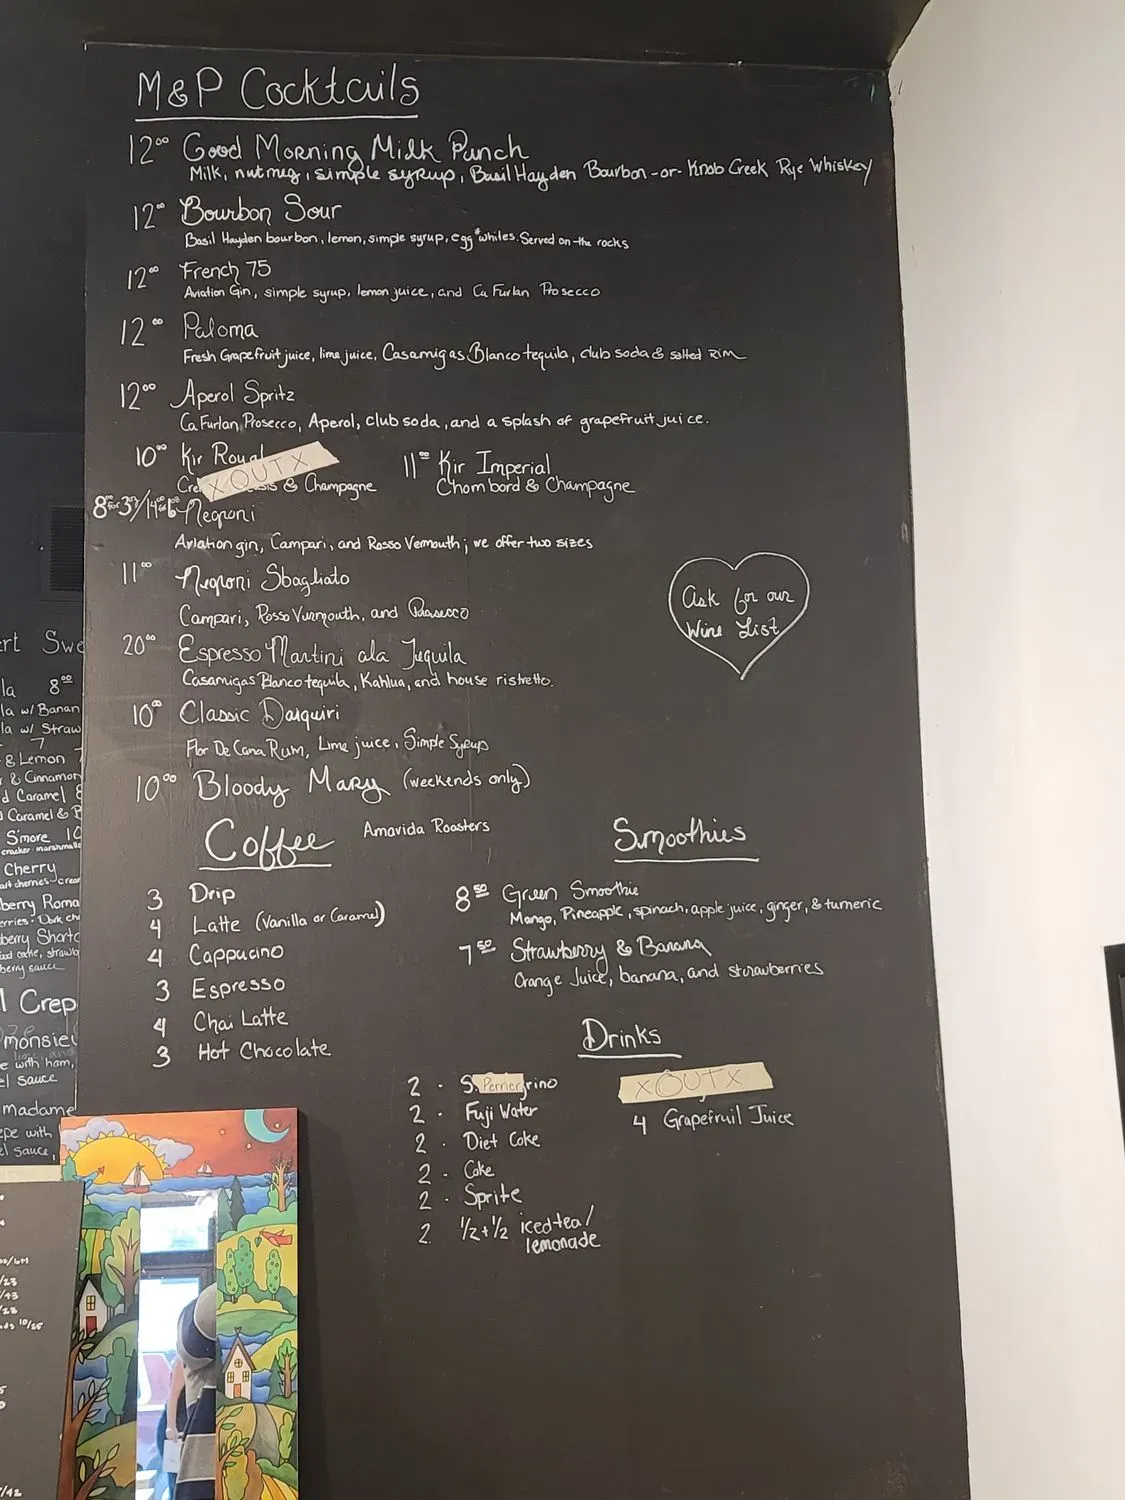 M&P Cocktails
12⁰⁰ Good Morning Milk Punch
Milk, nutmeg, simple syrup, Basil Hayden Bourbon -or- Knob Creek Rye Whiskey
12⁰⁰ Bourbon Sour
Basil Hayden bourbon, lemon, simple syrup, egg *whites. Served on the rocks
12⁰⁰ French 75
Aviation Gin, simple syrup, lemon juice, and Ca Furlan Prosecco
12⁰⁰ Paloma
Fresh Grapefruit juice, lime juice, Casamigas Blanco tequila, club soda & salted rim
12⁰⁰ Aperol Spritz
Ca Furlan Prosecco, Aperol, club soda, and a splash of grapefruit juice.
10⁰⁰ Kir Royal
X OUT X
& Champagne
11⁰⁰ Kir Imperial
Chombord & Champagne
Negroni
Aviation gin, Campari, and Rosso Vermouth; we offer two sizes
11⁰⁰ Negroni Sbagliato
Campari, Rosso Vurmouth, and Prosecco
Ask for our
Wine List
20⁰⁰ Espresso Martini ala Tequila
Casamigas Blanco tequila, Kahlua, and house ristretto.
10⁰⁰ Classic Daiquiri
Flor De Cana Rum, Lime juice, Simple Syrup
10⁰⁰ Bloody Mary (weekends only)
Coffee Amavida Roasters
3 Drip
4 Latte (Vanilla or Caramel)
4 Cappucino
3 Espresso
4 Chai Latte
3 Hot Chocolate
Smoothies
8⁵⁰ Green Smoothie
Mango, Pineapple, spinach, apple juice, ginger, & tumeric
7⁵⁰ Strawberry & Banana
Orange Juice, banana, and strawberries
Drinks
2 - S. Pernegrino
2 - Fuji Water
2 - Diet Coke
2 - Coke
2 - Sprite
2 1/2 + 1/2 iced tea/
lemonade
X OUT X
4 Grapefruit Juice
8⁰⁰
la w/ Banan
la w/ Straw
7
& Lemon 7
& Cinnamon
d Caramel 8
Caramel & B
S'more 10
cracker marshmall
Cherry
berry Roma
berry Shortc
berry sauce
Crep
monsieu
with ham,
sauce
madame
with
sauce,